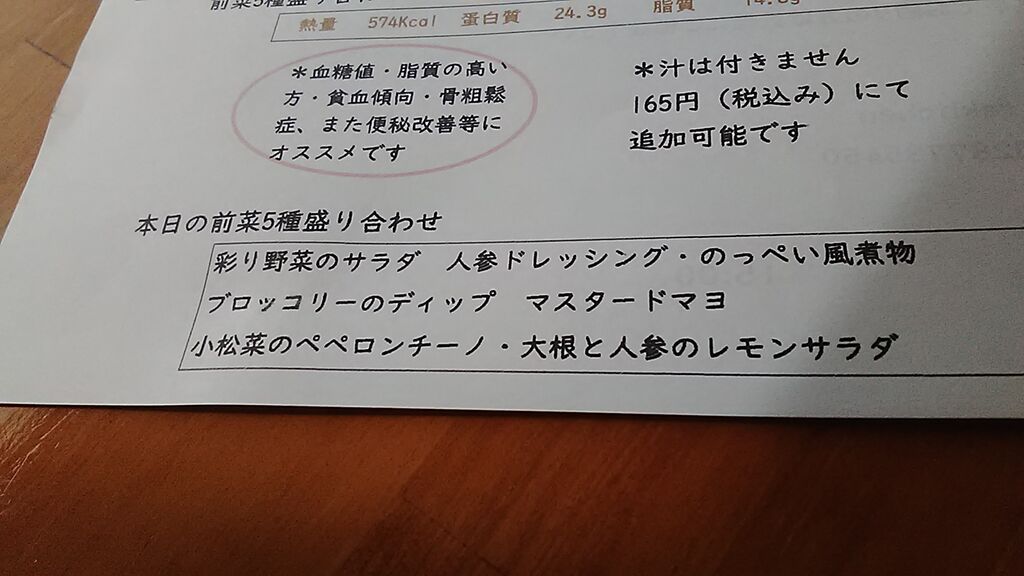 前菜5種盛り合わせ
熱量 574Kcal 蛋白質 24.3g 脂質
*血糖値・脂質の高い
方・貧血傾向・骨粗鬆
症、また便秘改善等に
オススメです
*汁は付きません
165円（税込み）にて
追加可能です
本日の前菜5種盛り合わせ
彩り野菜のサラダ 人参ドレッシング・のっぺい風煮物
ブロッコリーのディップ マスタードマヨ
小松菜のペペロンチーノ・大根と人参のレモンサラダ